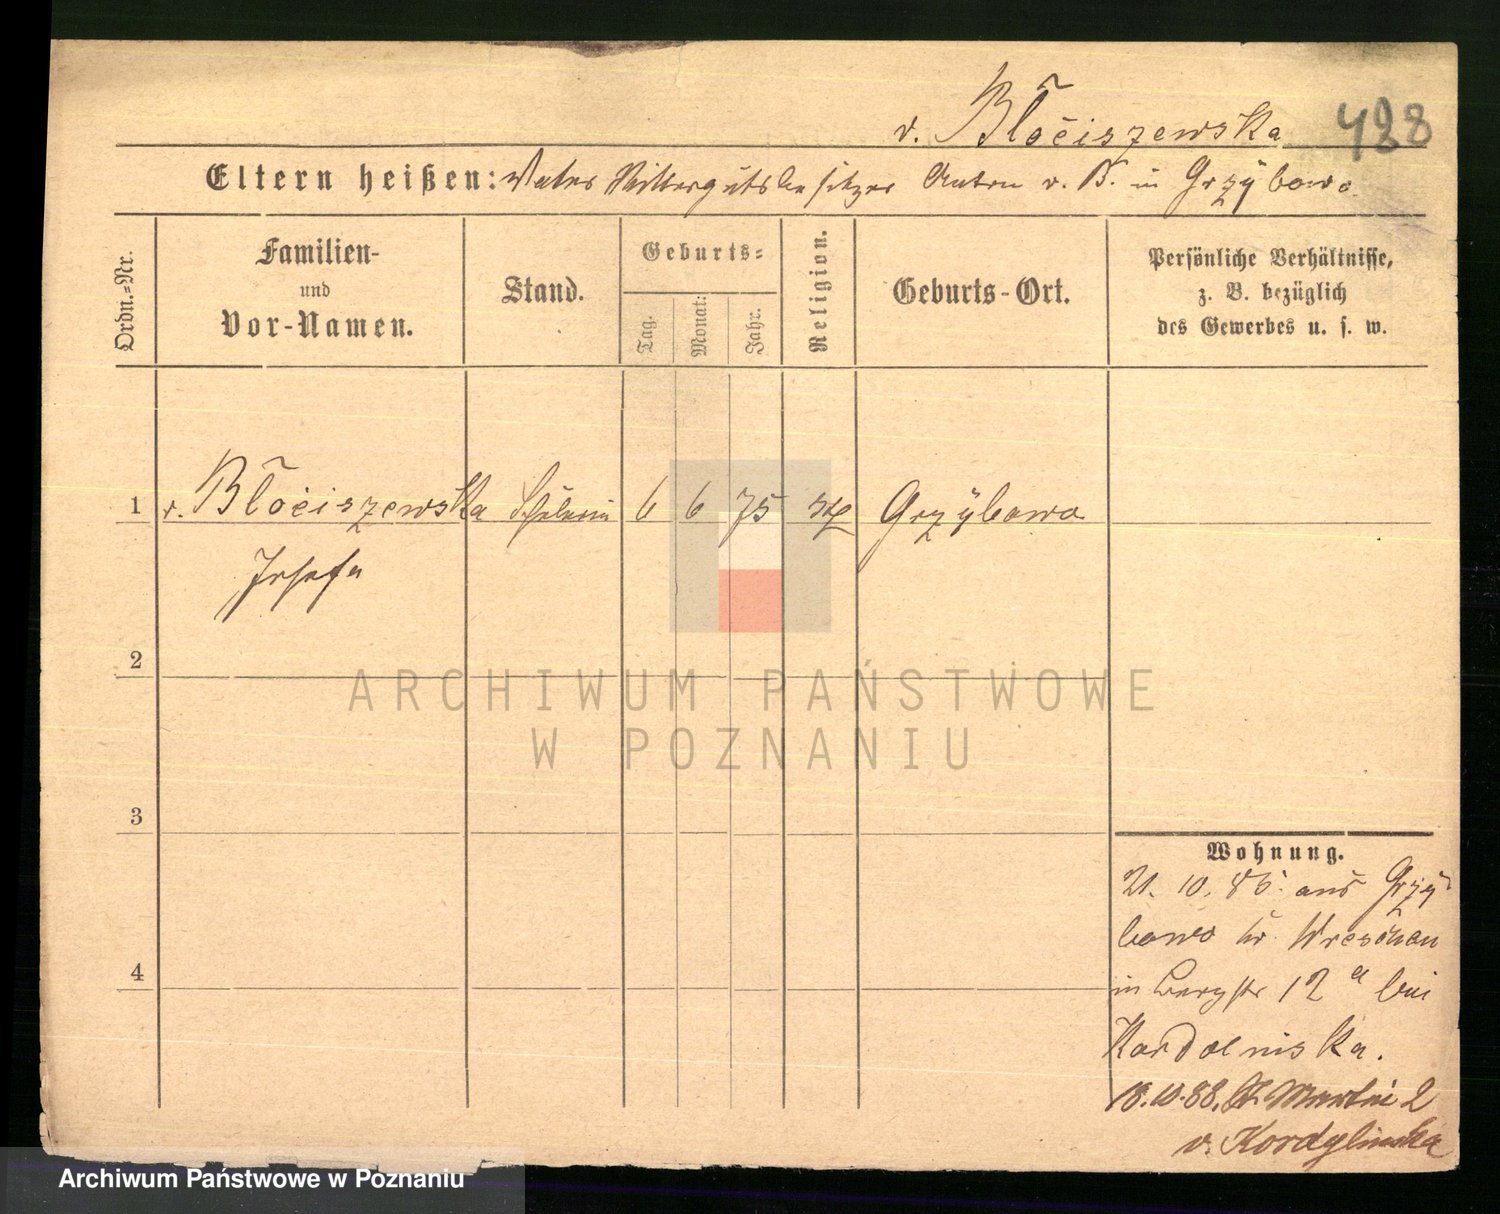 v. Błociszewska 428
Eltern heißen: Vater Rittergutsbesitzer Anton v. B. in Grzybowo
Ordn.-Nr.
Familien-
und
Vor-Namen.
Stand.
Geburts-
Tag.
Monat:
Jahr.
Religion.
Geburts-Ort.
Persönliche Verhältnisse,
z. B. bezüglich
des Gewerbes u. s. w.
1 v. Błociszewska Schülerin 6 6 75 Grzybowo
Josefa
2
ARCHIWUM PAŃSTWOWE
W POZNANIU
3
Wohnung.
21. 10. 85. aus Grzy
bowo Kr. Wreschen
4
in Bergstr 12 a bei
10.88. St Martin 2
v. Kordylinska
Archiwum Państwowe w Poznaniu